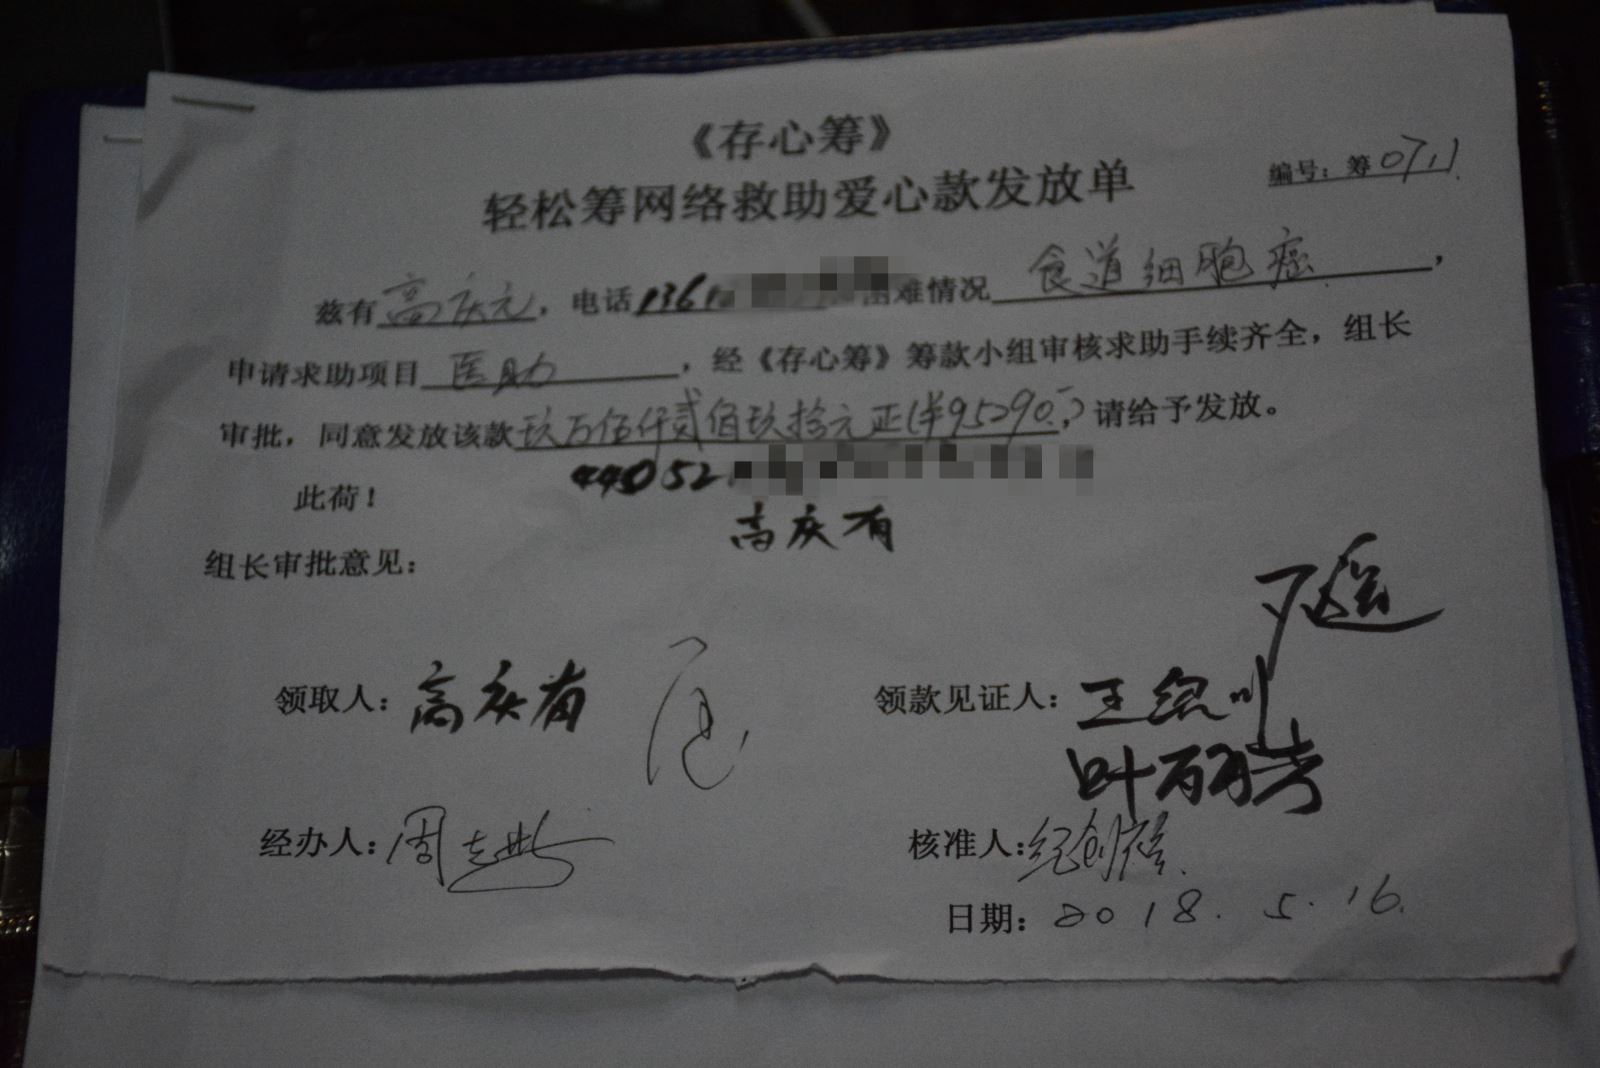 《存心筹》
轻松筹网络救助爱心款发放单
编号：筹0711
兹有高庆元，电话136 难情况食道细胞癌，
申请求助项目医助，经《存心筹》筹款小组审核求助手续齐全，组长
审批，同意发放该款玖万伍仟贰佰玖拾元正(¥95290.-)请给予发放。
44052
此荷！
高庆有
组长审批意见：
领取人：高庆有
领款见证人：王
叶丽芳
经办人：周
核准人：纪创
日期：2018.5.16.